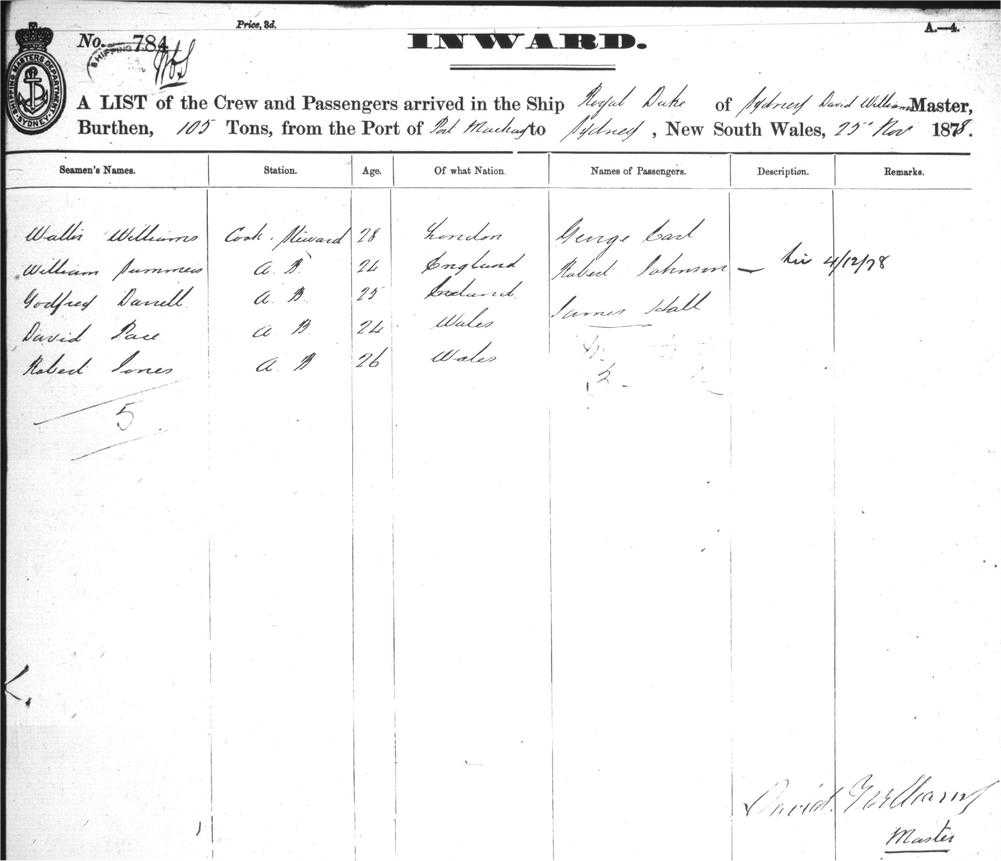 Price, 3d.
A.—4.
No. 784
INWARD.
SHIPPING MASTERS DEPARTMENT
SYDNEY
SHIPPING
A LIST of the Crew and Passengers arrived in the Ship Royal Duke of Sydney David Williams Master,
Burthen, 105 Tons, from the Port of Port Mackay to Sydney, New South Wales, 25" Nov 1878.
Seamen's Names. Station. Age. Of what Nation. Names of Passengers. Description. Remarks.
Wallis Williams Cook. Steward 28 London George Earl
William Summers A B 24 England Robert Johnson — 4/12/78
Godfred Darrell A B 25 Ireland James Hall
David Pace A B 24 Wales
Robert Jones A B 26 Wales
5
David Williams
Master